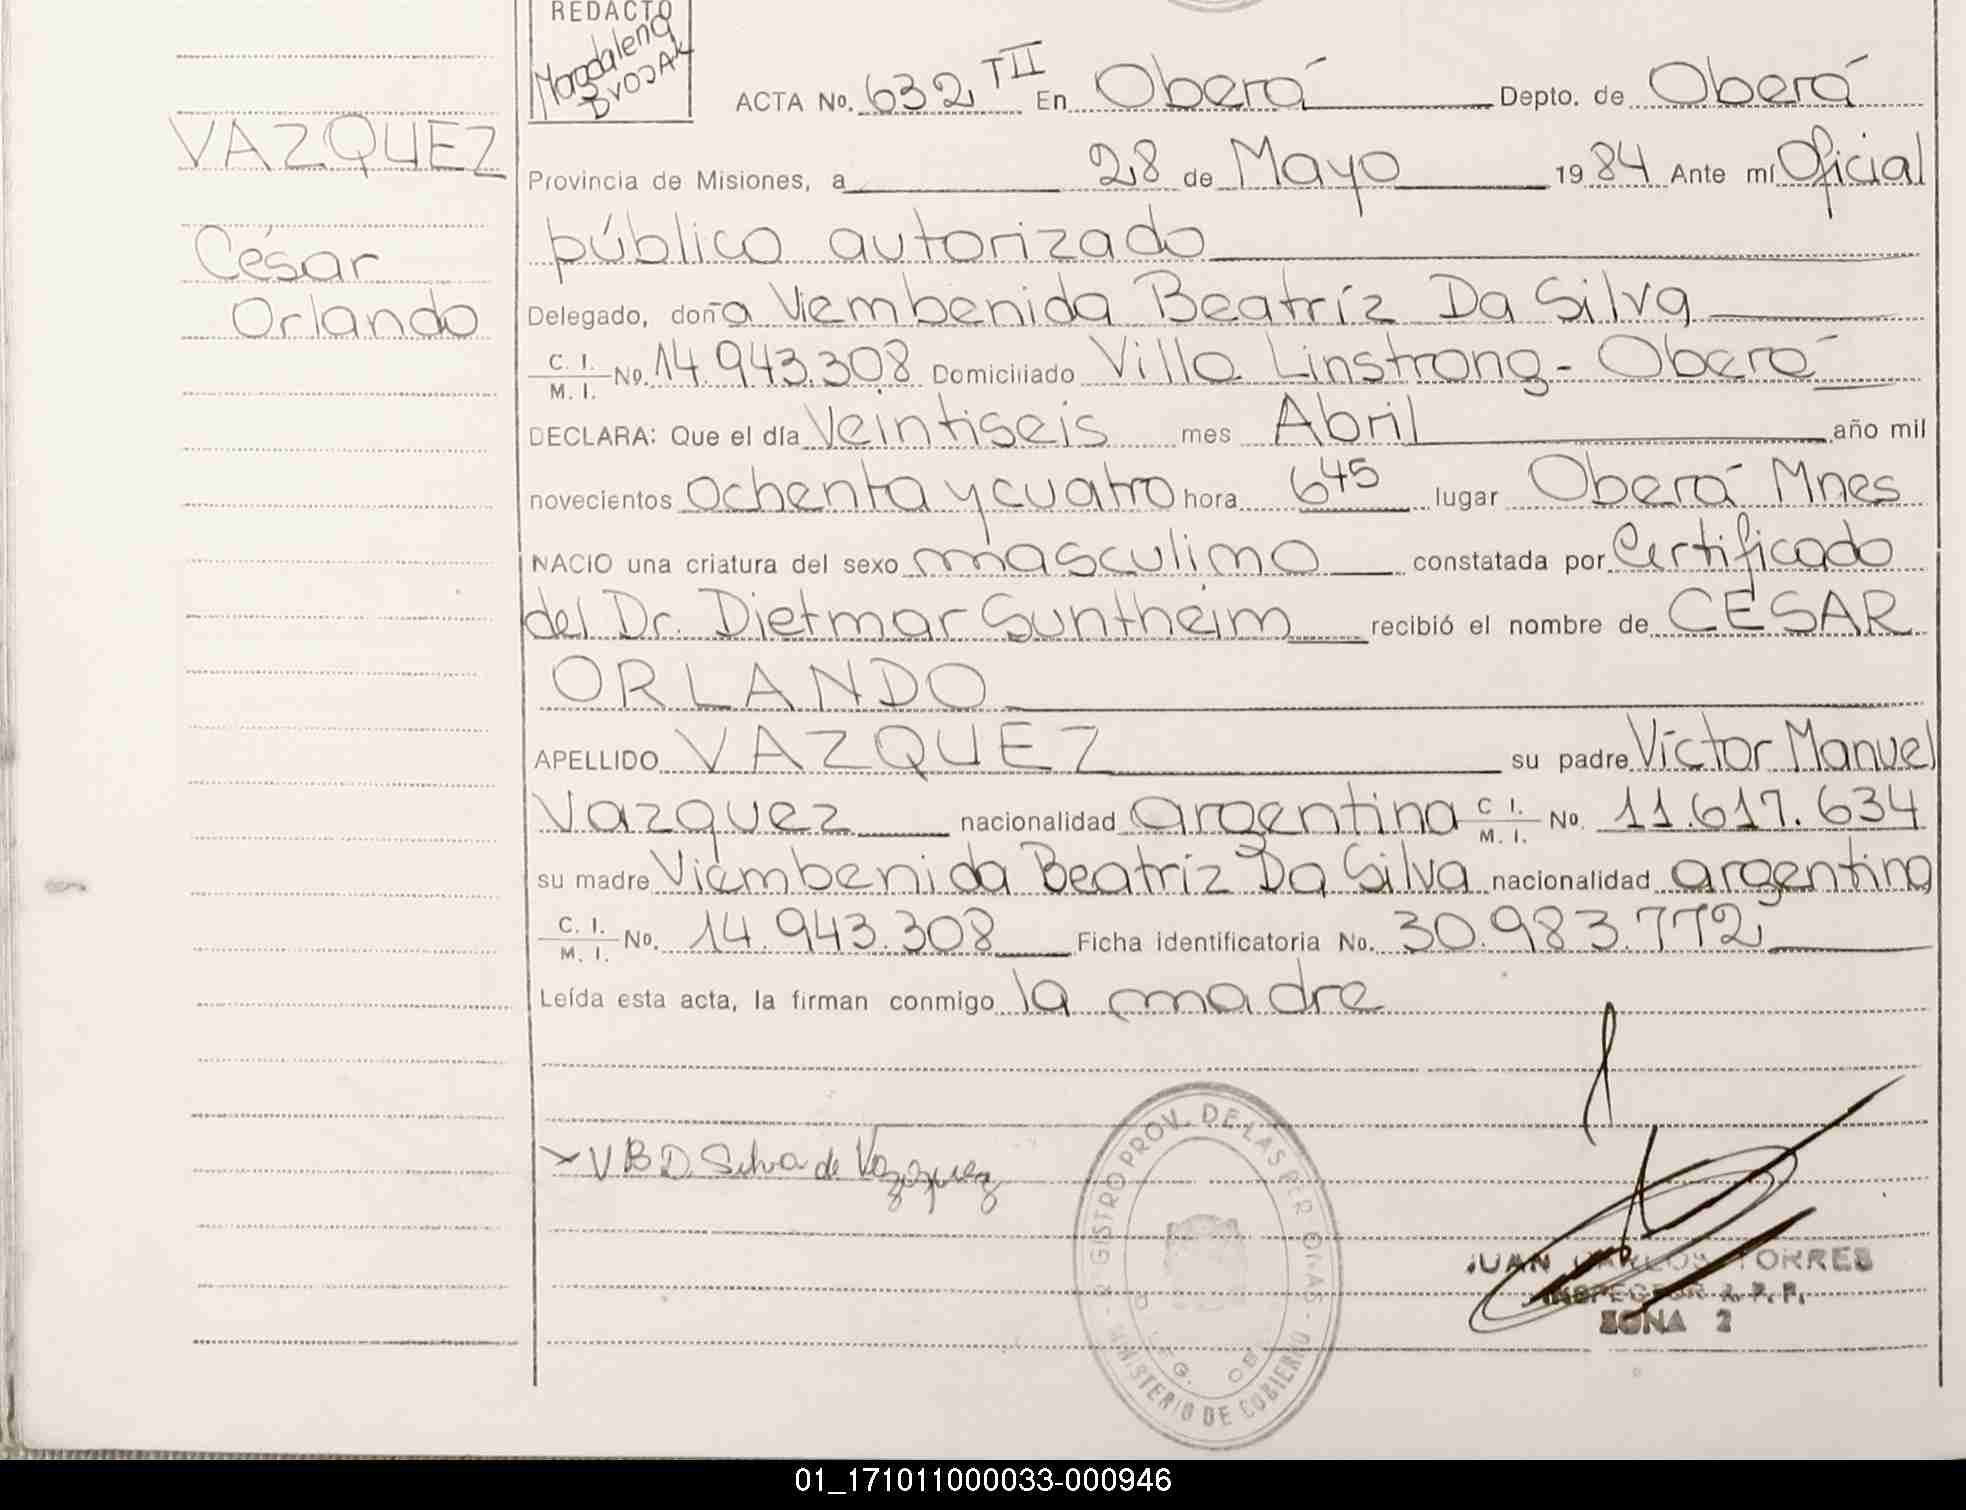 REDACTO
Magdalena
Brojak
ACTA No. 632 TII En Oberá Depto. de Oberá
VAZQUEZ
César
Orlando
Provincia de Misiones, a 28 de Mayo 1984 Ante mí Oficial
público autorizado
Delegado, doña Viembenida Beatríz Da Silva
C. I. / M. I. No. 14.943.308 Domiciliado Villa Linstrong - Oberá
DECLARA: Que el día Veintiseis mes Abril año mil
novecientos ochenta y cuatro hora 6 45 lugar Oberá Mnes
NACIO una criatura del sexo masculino constatada por Certificado
del Dr. Dietmar Suntheim recibió el nombre de CESAR
ORLANDO
APELLIDO VAZQUEZ su padre Víctor Manuel
Vazquez nacionalidad argentina C I. / M. I. No. 11.617.634
su madre Viembenida Beatriz Da Silva nacionalidad argentina
C. I. / M. I. No. 14.943.308 Ficha identificatoria No. 30.983.772
Leída esta acta, la firman conmigo la madre
V B D Silva de Vazquez
REGISTRO PROV. DE LAS PERSONAS - MINISTERIO DE GOBIERNO
JUAN CARLOS TORRES
INSPECTOR R. P. P.
ZONA 2
01_171011000033-000946